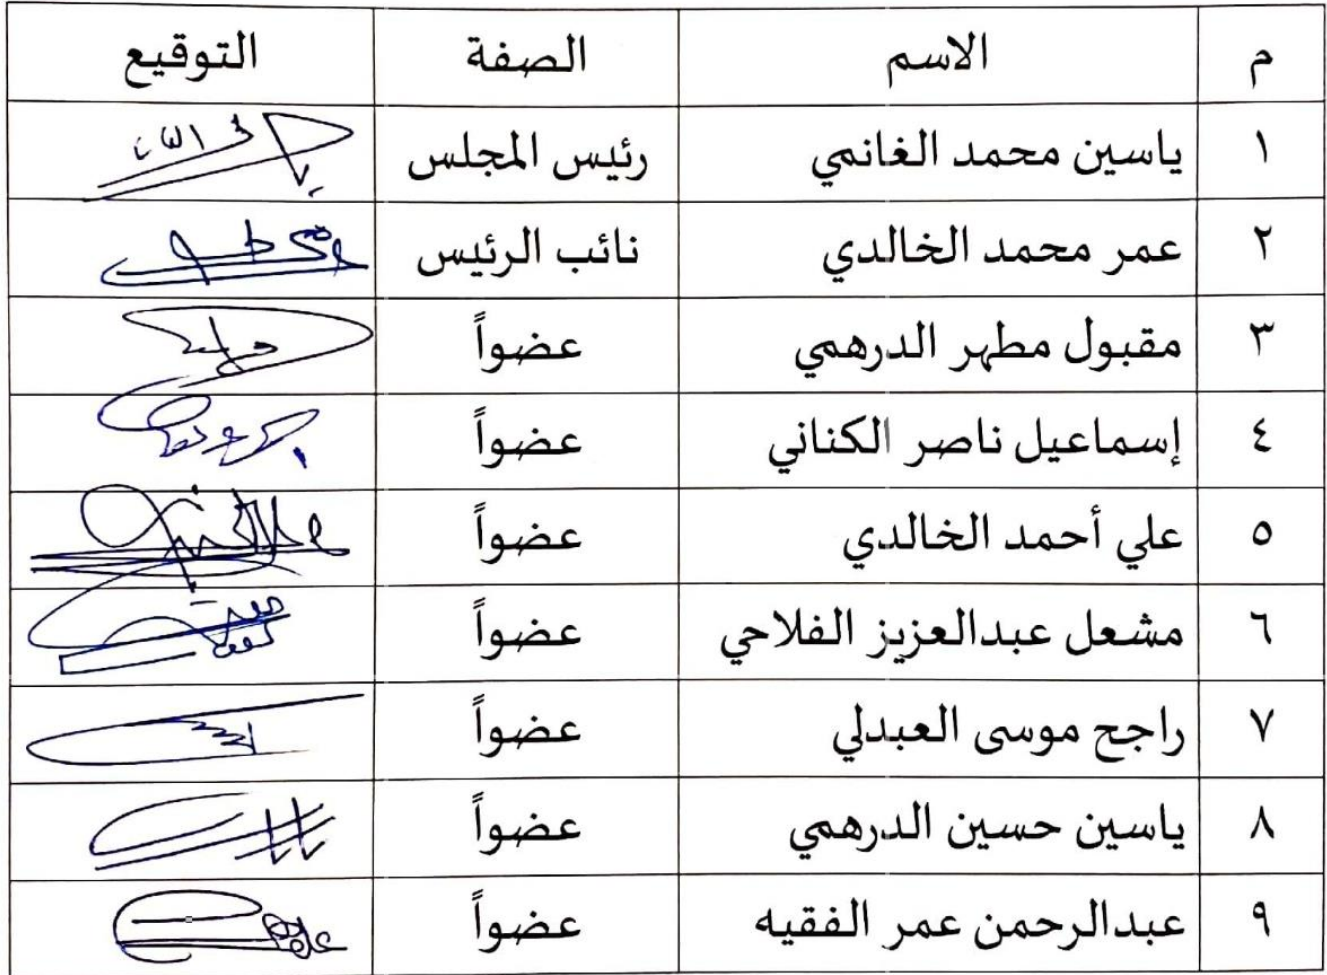 م الاسم الصفة التوقيع
١ ياسين محمد الغانمي رئيس المجلس
٢ عمر محمد الخالدي نائب الرئيس
٣ مقبول مطهر الدرهمي عضواً
٤ إسماعيل ناصر الكناني عضواً
٥ علي أحمد الخالدي عضواً
٦ مشعل عبدالعزيز الفلاحي عضواً
٧ راجح موسى العبدلي عضواً
٨ ياسين حسين الدرهمي عضواً
٩ عبدالرحمن عمر الفقيه عضواً